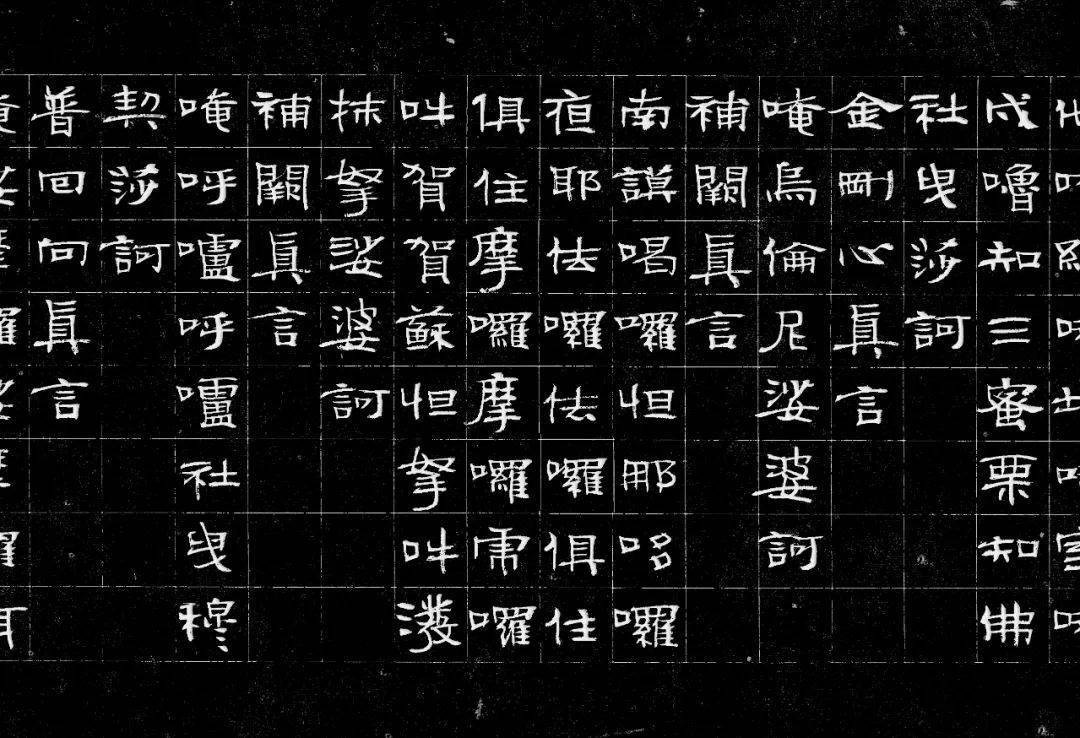 戍嚕知三蜜栗知佛
社曳莎訶
金剛心眞言
唵烏倫尼娑婆訶
補闕眞言
南謨喝囉怛那哆囉
夜耶佉囉佉囉俱住
俱住摩囉摩囉虎囉
吽賀賀蘇怛拏吽潑
抹拏娑婆訶
補闕眞言
唵呼嚧呼嚧社曳穆
契莎訶
普回向眞言